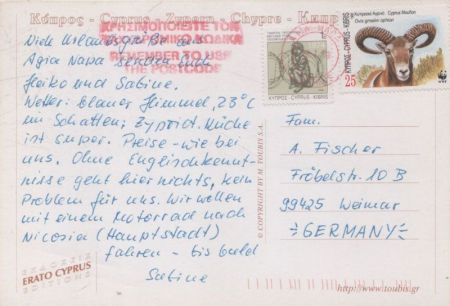 Κύπρος - Cyprus - Zypern - Chypre - Кипр
ΧΡΗΣΙΜΟΠΟΙΕΙΤΕ ΤΟΝ
ΤΑΧΥΔΡΟΜΙΚΟ ΚΩΔΙΚΑ
REMEMBER TO USE
THE POSTCODE
Viele Urlaubsgrüße aus
Agia Napa senden Euch
Heiko und Sabine.
Wetter: blauer Himmel, 23°C
im Schatten; Zypriot. Küche
ist super. Preise - wie bei
uns. Ohne Englischkennt-
nisse geht hier nichts, kein
Problem für uns. Wir wollen
mit einem Motorrad nach
Nicosia (Hauptstadt)
fahren - bis bald
Sabine
ΕΚΔΟΣΕΙΣ
ERATO CYPRUS
EDITIONS
© COPYRIGHT BY M. TOUBIS S.A.
ΚΥΠΡΟΣ CYPRUS KIBRIS
Κυπριακό Αγρινό. Cyprus Mouflon
Ovis gmelini ophion
ΚΥΠΡΟΣ CYPRUS KIBRIS
25
WWF
Fam.
A. Fischer
Fröbelstr. 10 B
99425 Weimar
GERMANY
http://www.toubis.gr